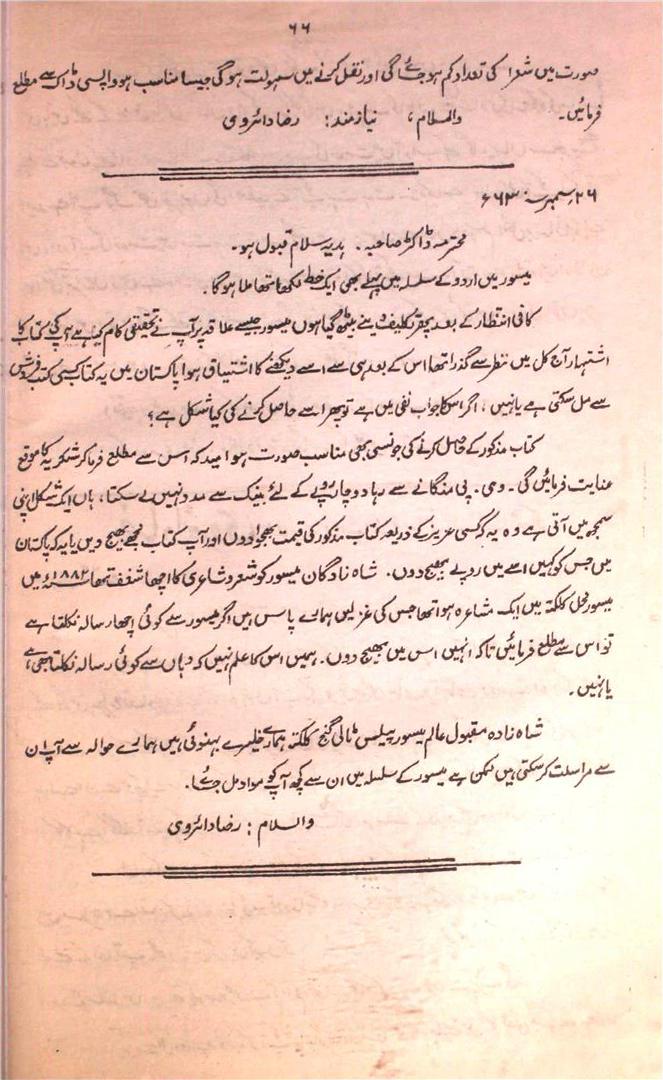 ۶۶
صورت میں شعرا کی تعداد کم ہو جائے گی اور نقل کرنے میں سہولت ہوگی جیسا مناسب ہو واپسی ڈاک سے مطلع
فرمائیں۔ والسلام، نیازمند: رضا دائروی
۲۶ دسمبر سنہ ۶۳ء
محترمہ ڈاکٹر صاحبہ۔ ہدیہ سلام قبول ہو۔
میسور میں اردو کے سلسلہ میں پہلے بھی ایک خط لکھا تھا ملا ہوگا۔
کافی انتظار کے بعد پھر تکلیف دینے بیٹھ گیا ہوں میسور جیسے علاقہ پر آپ نے تحقیقی کام کیا ہے آپ کی کتاب کا
اشتہار آج کل میں نظر سے گذرا تھا اس کے بعد ہی سے اسے دیکھنے کا اشتیاق ہوا پاکستان میں یہ کتاب کسی کتب فروش
سے مل سکتی ہے یا نہیں، اگر اس کا جواب نفی میں ہے تو پھر اسے حاصل کرنے کی کیا شکل ہے؟
کتاب مذکور کے حاصل کرنے کی جونسی بھی مناسب صورت ہو امید کہ اس سے مطلع فرما کر شکریہ کا موقع
عنایت فرمائیں گی۔ وی۔ پی منگانے سے رہا دو چار روپے کے لئے بینک سے مدد نہیں لے سکتا، ہاں ایک شکل اپنی
سمجھ میں آتی ہے وہ یہ کہ کسی عزیز کے ذریعہ کتاب مذکور کی قیمت بھجوا دوں اور آپ کتاب مجھے بھیج دیں یا یہ کہ پاکستان
میں جس کو کہیں اسے میں روپے بھیج دوں۔ شاہ زادگان میسور کو شعر و شاعری کا اچھا شغف تھا ۱۸۸۲ء میں
میسور محل کلکتہ میں ایک مشاعرہ ہوا تھا جس کی غزلیں ہمارے پاس ہیں اگر میسور سے کوئی اچھا رسالہ نکلتا ہے
تو اس سے مطلع فرمائیں تاکہ انہیں اس میں بھیج دوں۔ ہمیں اس کا علم نہیں کہ وہاں سے کوئی رسالہ نکلتا بھی ہے
یا نہیں۔
شاہ زادہ مقبول عالم میسور پیلیس ٹالی گنج کلکتہ ہمارے خلیرے بہنوئی ہیں ہمارے حوالہ سے آپ ان
سے مراسلت کر سکتی ہیں ممکن ہے میسور کے سلسلہ میں ان سے کچھ آپ کو مواد مل جائے۔
والسلام: رضا دائروی